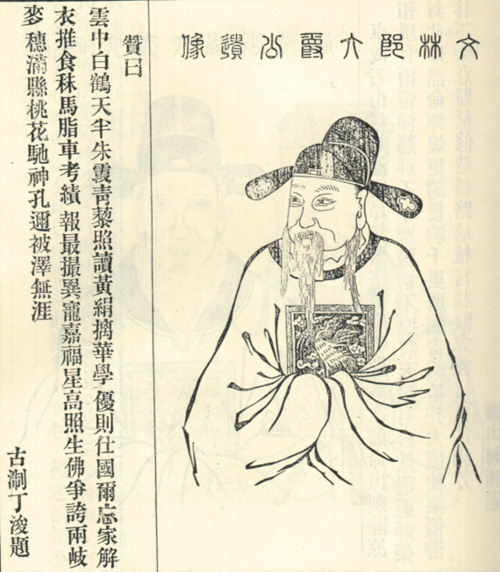 文林郎大爵公遺像
贊曰
雲中白鶴天半朱霞青藜照讀黃絹摛華學優則仕國爾忘家解
衣推食秣馬脂車考績報最撮異寵嘉福星高照生佛爭誇兩岐
麥穗滿縣桃花馳神孔邇被澤無涯
古淛丁浚題